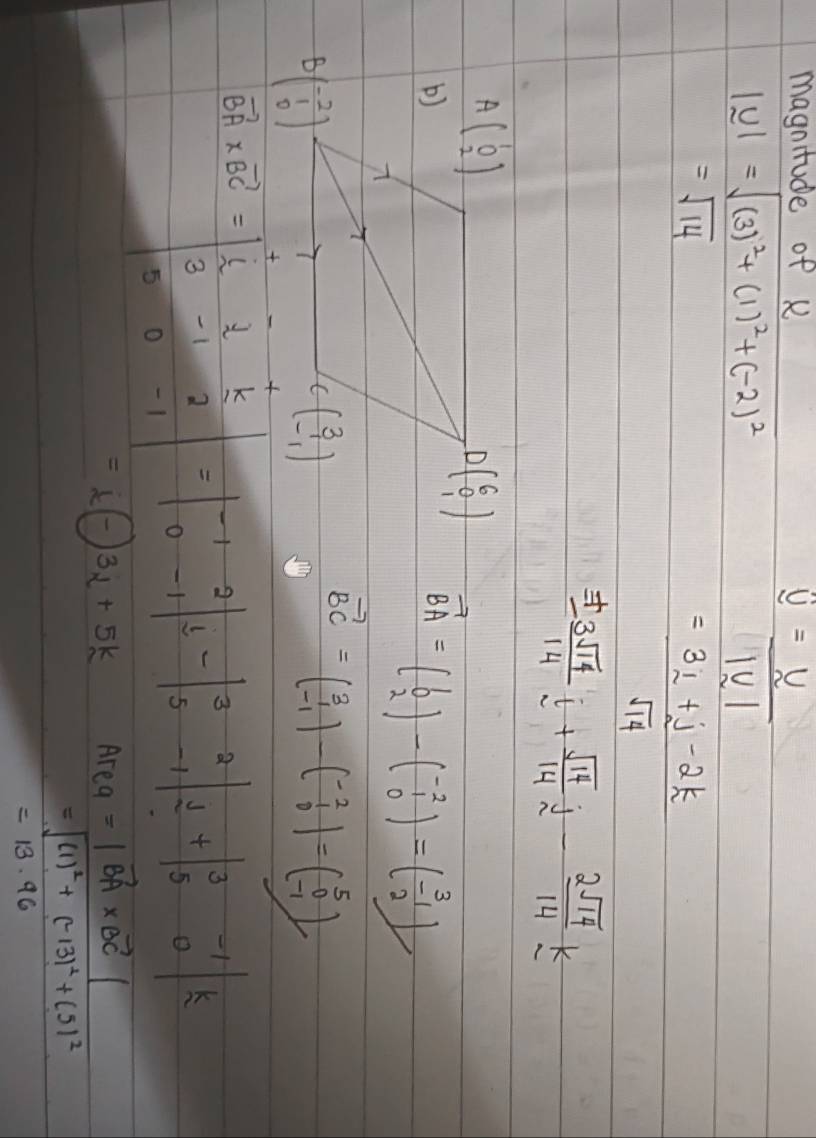 magnitude of u
|u| = √(3)² + (1)² + (-2)²
= √14
û = u / |u|
= 3i + j - 2k / √14
= 3√14/14 i + √14/14 j - 2√14/14 k
b)
A (1 0 2)
D (6 0 1)
B (-2 1 0)
C (3 1 -1)
BA = (1 0 2) - (-2 1 0) = (3 -1 2)
BC = (3 1 -1) - (-2 1 0) = (5 0 -1)
+ - +
BA × BC = | i j k | = | -1 2 | i - | 3 2 | j + | 3 -1 | k
| 3 -1 2 | | 0 -1 | | 5 -1 | | 5 0 |
| 5 0 -1 |
= i (-) 13j + 5k
Area = |BA × BC|
= √(1)² + (-13)² + (5)²
= 13.96